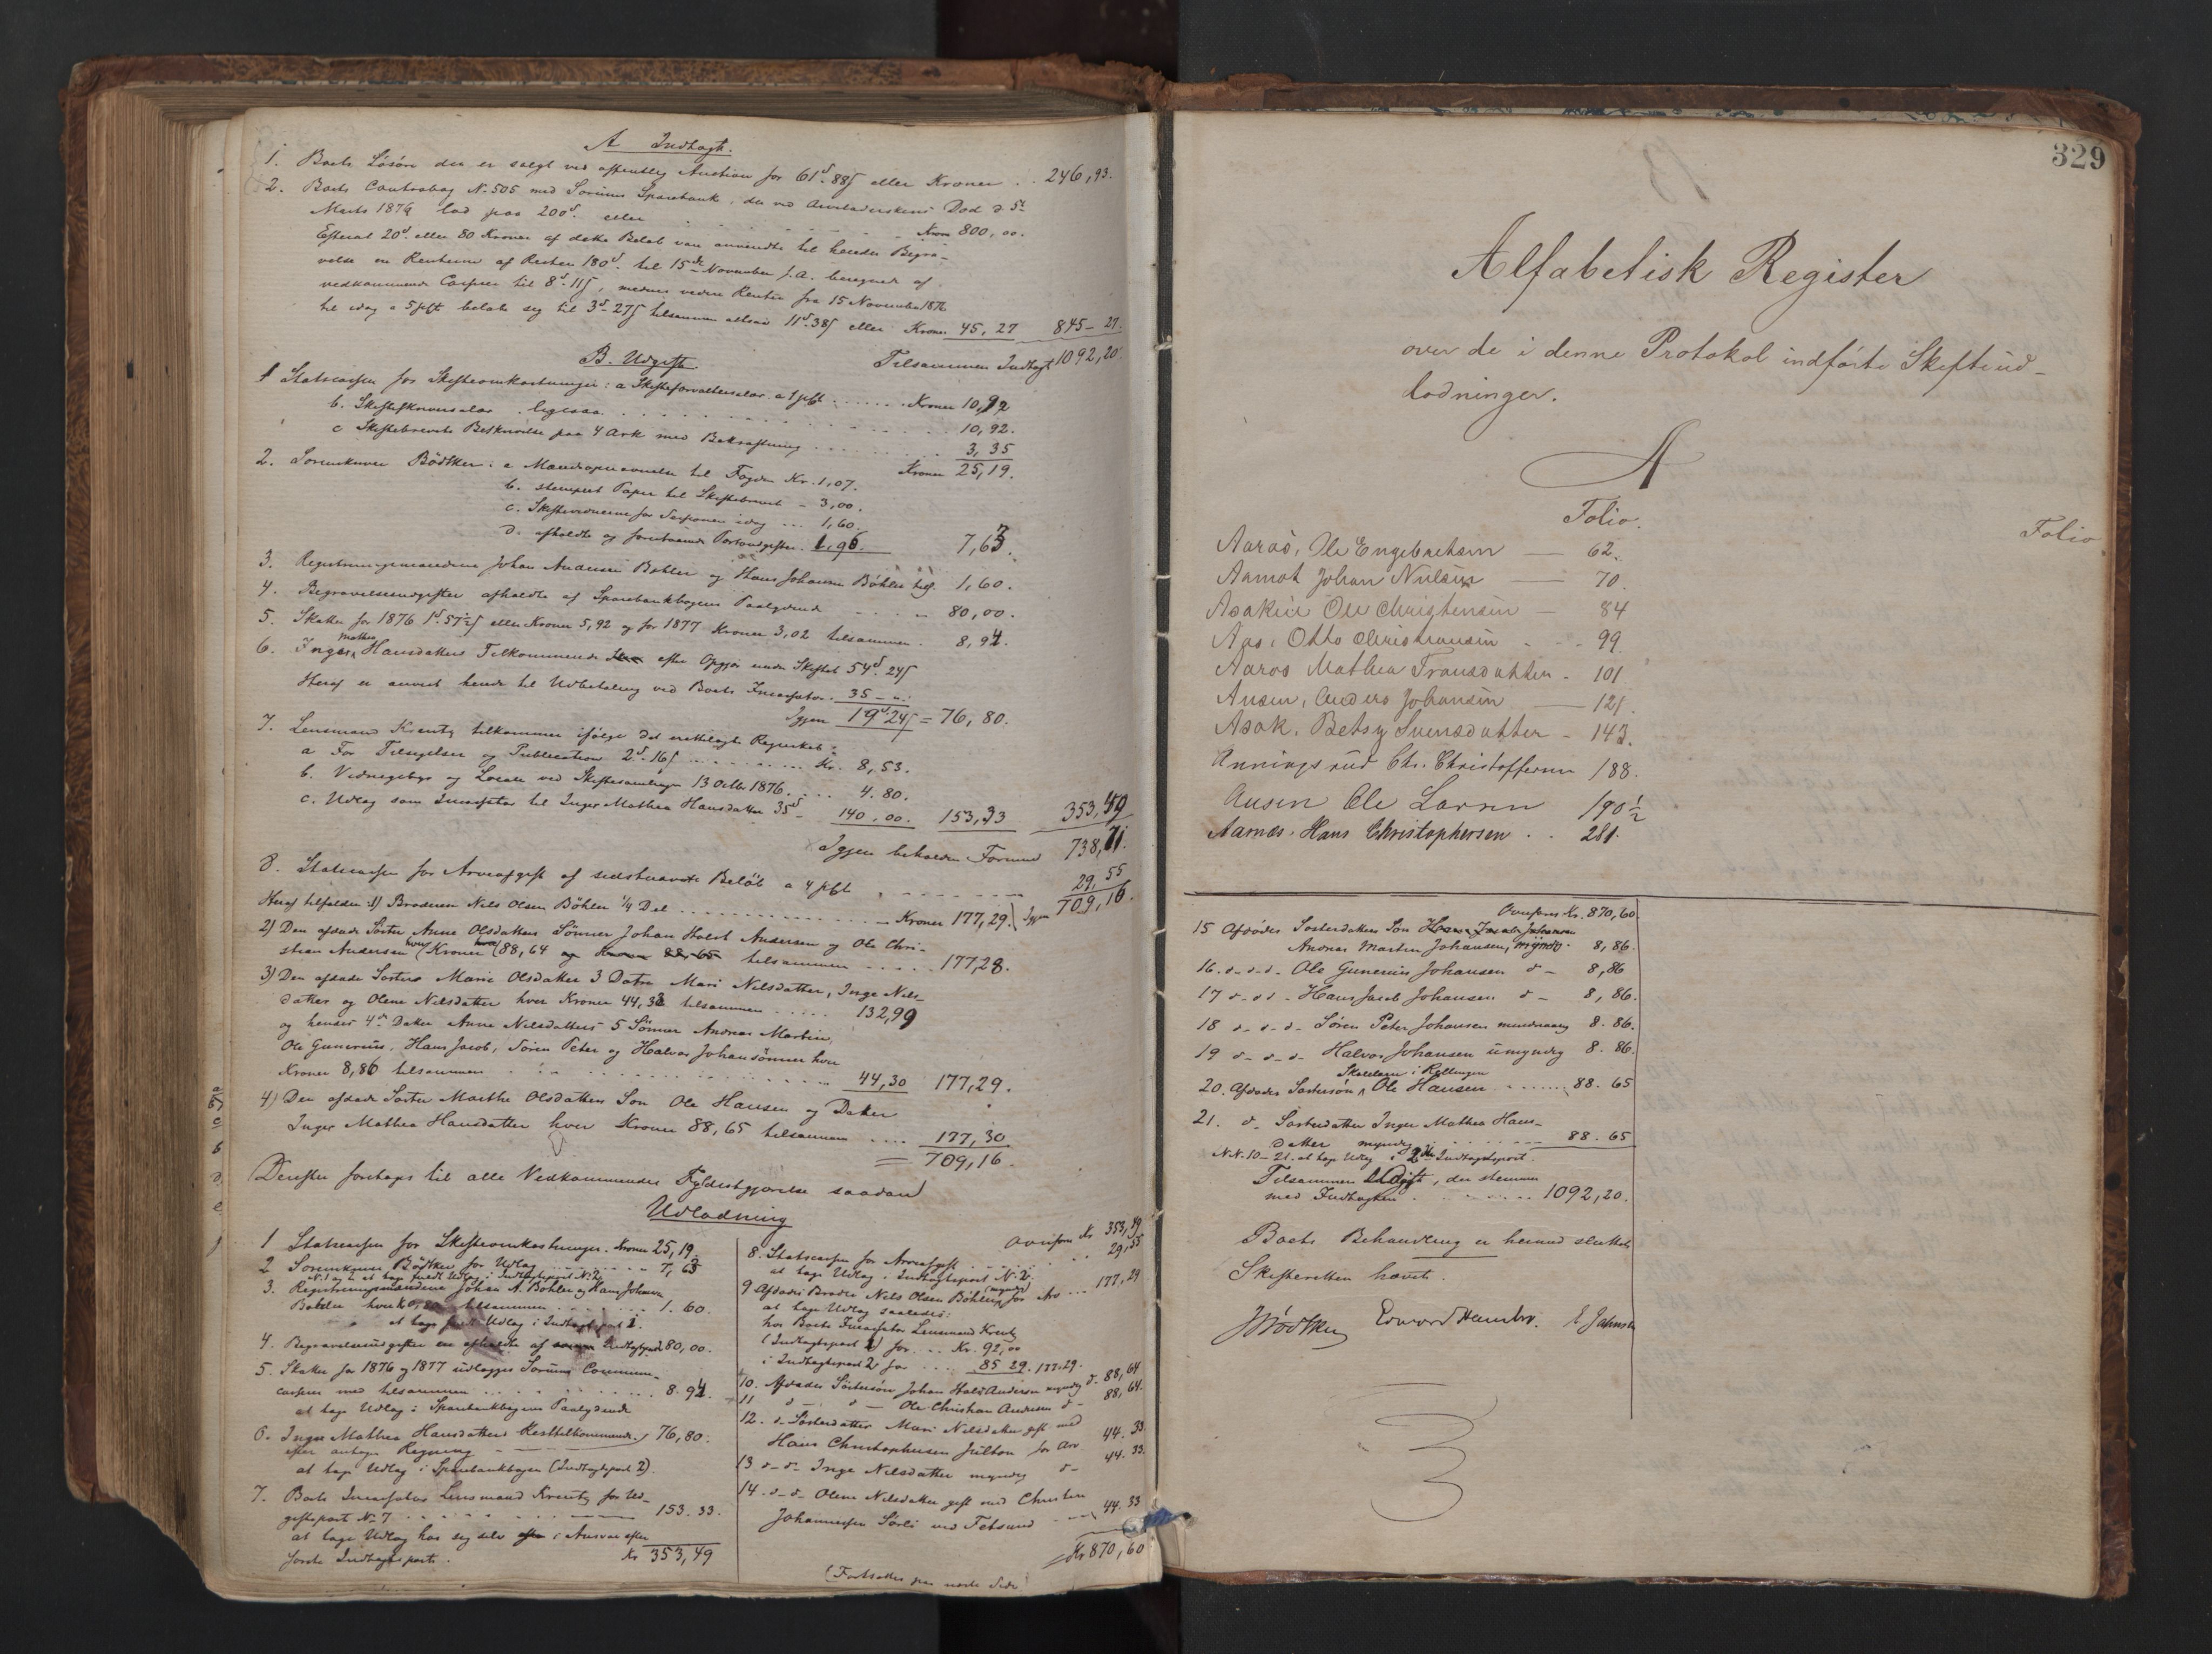 A Indtægt.
1. Boets Løsøre der er solgt ved offentlig Auction for 61d. 88s eller Kroner . . 246,93.
2. Boets Contrabog N. 505 med Sørums Sparebank, der ved Arveladerskens Død d 5te
Marts 1876 lød paa 200d. eller . . . . Kroner 800,00.
Efterat 20d. eller 80 Kroner af dette Beløb var anvendte til hendes Begra-
velse er Renterne af Resten 180d. til 15de November f.A. beregnet af
vedkommende Casserer til 8d. 11s, medens videre Renter fra 15 November 1876
til idag a 5 pCt beløbe sig til 3d- 27s tilsammen altsaa 11d. 38s eller Kroner 45,27 845- 27.
Tilsammen Indtægt 1092,20.
B. Udgift.
1 Statscassen for Skifteomkostninger: a Skifteforvaltersalær a 1 pCt . . . . . . Kroner 10,92
b. Skifteskriversalær . ligesaa . . . . . . 10,92.
c Skiftebrevets Beskrivelse paa 4 Ark med Bekræftning . . . . . . 3,35
Kroner 25,19.
2. Sorenskriver Bödtker: a Mændsopnævnelse til Fogden Kr. 1,07.
b. stemplet Papir til Skiftebrevet - 3,00.
c. Skiftevidnerne for Sessionen idag ... 1,60.
d. afholdte og forestaaende Portoudgifter. 1,96. 7,63.
3. Registreringsmændene Johan Andersen Bøhler og Hans Johnsen Bøhler tils. 1,60.
4. Begravelsesudgifter afholdte af Sparebankbogens Paalydende - - - - 80,00.
5. Skatter for 1876 1d. 57½s eller Kroner 5,92 og for 1877 Kroner 3,02 tilsammen . 8,94.
6. Inger Mathea Hansdatters Tilkommende efter Opgjør under Skiftet 54d. 24s
Heraf er anvist hende til Udbetaling ved Boets Incassator . 35 - "
Igjen 19d 24s = 76,80.
7. Lensmand Krentz tilkommer ifølge det fremlagte Regnskab:
a For Tilsigelser og Publication 2d. 16s . . . . . . . Kr. 8,53.
b. Vidnegebyr og Locale ved Skiftesamlingen 13 Octbr 1876. . . . 4.80.
c. Udlæg som Incassator til Inger Mathea Hansdatter 35d - 140.00. 153,33 353,49
Igjen beholden Formue 738,71.
8. Statscassen for Arveafgift af sidstnævnte Beløb a 4 pCt . . . . . . 29,55
Igjen 709,16.
Heraf tilfalder: 1) Broderen Nils Olsen Bøhler ¼ Del . . . . . . Kroner 177,29.
2) Den afdøde Søster Anne Olsdatters Sönner Johan Holst Andersen og Ole Chri-
stian Andersen hver Kroner 88,64 tilsammen . . . . . 177,28.
3) Den afdøde Søsters Marie Olsdatter 3 Døtre Mari Nilsdatter, Inge Nils-
datter og Olene Nilsdatter hver Kroner 44,33 tilsammen . . . . . 132,99
og hendes 4de Datter Anne Nilsdatters 5 Sönner Andreas Martin,
Ole Gunerius, Hans Jacob, Sören Peter og Halvor Johansönner hver
Kroner 8,86 tilsammen . . . . . . 44,30 177,29.
4) Den afdøde Søster Marthe Olsdatters Søn Ole Hansen og Datter
Inger Mathea Hansdatter hver Kroner 88,65 tilsammen . . . . 177,30
= 709,16.
Derefter foretages til alle Vedkommendes Fyldestgjørelse saadan
Udlodning
1 Statscassen for Skifteomkostninger. Kroner 25,19.
2 Sorenskriver Bödtker for Udlæg . . . . . 7,63
N. 1 og 2 at tage Udlæg i Indtægtspost N. 2
3. Registreringsmændene Johan A. Bøhler og Hans Johnsen
Bøhler hver 0,80 tilsammen . . . . . . 1.60.
at tage Udlæg i Indtægtspost 1.
4. Begravelsesudgifter er afholdte af Indtægtspost 80,00.
5. Skatter for 1876 og 1877 udlægges Sørums Commune-
casserer med tilsammen . . . . . . 8.94.
at tage Udlæg i Sparebankbogens Paalydende
6. Inger Mathea Hansdatters Resttilkommende 76,80.
efter antagen Regning
at tage Udlæg i Sparebankbogen (Indtægtspost 2).
7. Boets Incassator Lensmand Krentz for Ud-
giftspost N. 7 . . . . . . 153.33.
at tage Udlæg hos sig selv i Ansvar efter
første Indtægtspost. Kr 353,49
Overført Kr 353,49
8. Statscassen for Arveafgift . . . . . 29,55
at tage Udlæg i Indtægtspost N. 2.
9 Afdødes Broder Nils Olsen Bøhler (myndig) for Arv . . . 177,29
at tage Udlæg saaledes:
hos Boets Incassator Lensmand Krentz
(Indtægtspost 1) for . . . Kr. 92,00
i Indtægtspost 2 for . . . . 85 29. 177.29.
10. Afdødes Søstersøn Johan Holst Andersen myndig d- 88,64
11 d - d - Ole Christian Andersen d - 88,64.
12. d. Søsterdatter Mari Nilsdatter gift med
Hans Christophersen Julton for Arv 44.33
13 d- d- Inge Nilsdatter myndig d- 44.33.
14. d- d- Olene Nilsdatter gift med Christen
Johannessen Sørli ved Fetsund - - 44.33
Kr 870,60
(Fortsættes paa næste Side)
329
Alfabetisk Register
over de i denne Protokol indførte Skifteud-
lodninger.
A
Folio. Folio
Aaraos, Ole Engebretsen — 62.
Aamot Johan Nielsen — 70.
Asakeie Ole Christensen — 84
Aas, Otto Christiansen - - - 99
Aaros Mathea Fransdatter - 101
Ausen, Anders Johansen — 121.
Asak, Betsy Svensdatter - 143.
Anningsrud Chr. Christoffersen 188.
Ausen Ole Larsen 190½
Aamæs, Hans Christophersen . . 281.
Overført Kr. 870,60.
15 Afdødes Søsterdatters Søn
Andreas Martin Johansen, myndig. 8,86.
16. d-d-d- Ole Gunerius Johansen d - 8,86
17 d-d d - Hans Jacob Johansen d - 8,86.
18 d-d-d- Søren Peter Johansen mindreaarig 8.86.
19 d-d-d- Halvor Johansen umyndig 8.86.
Skolelærer i Rællingen
20. Afdødes Søstersøn Ole Hansen - - - - - 88.65
21. d- Søsterdatter Inger Mathea Hans-
datter myndig . . . . . . 88.65
N.N. 10-21. at tage Udlæg i 2den Indtægtspost.
Tilsammen Udgift, der stemmer
med Indtægten . . . . . . 1092,20.
Boets Behandling er hermed sluttet.
Skifteretten hævet.
JBödtker Edvard Hambro. E Johnsen